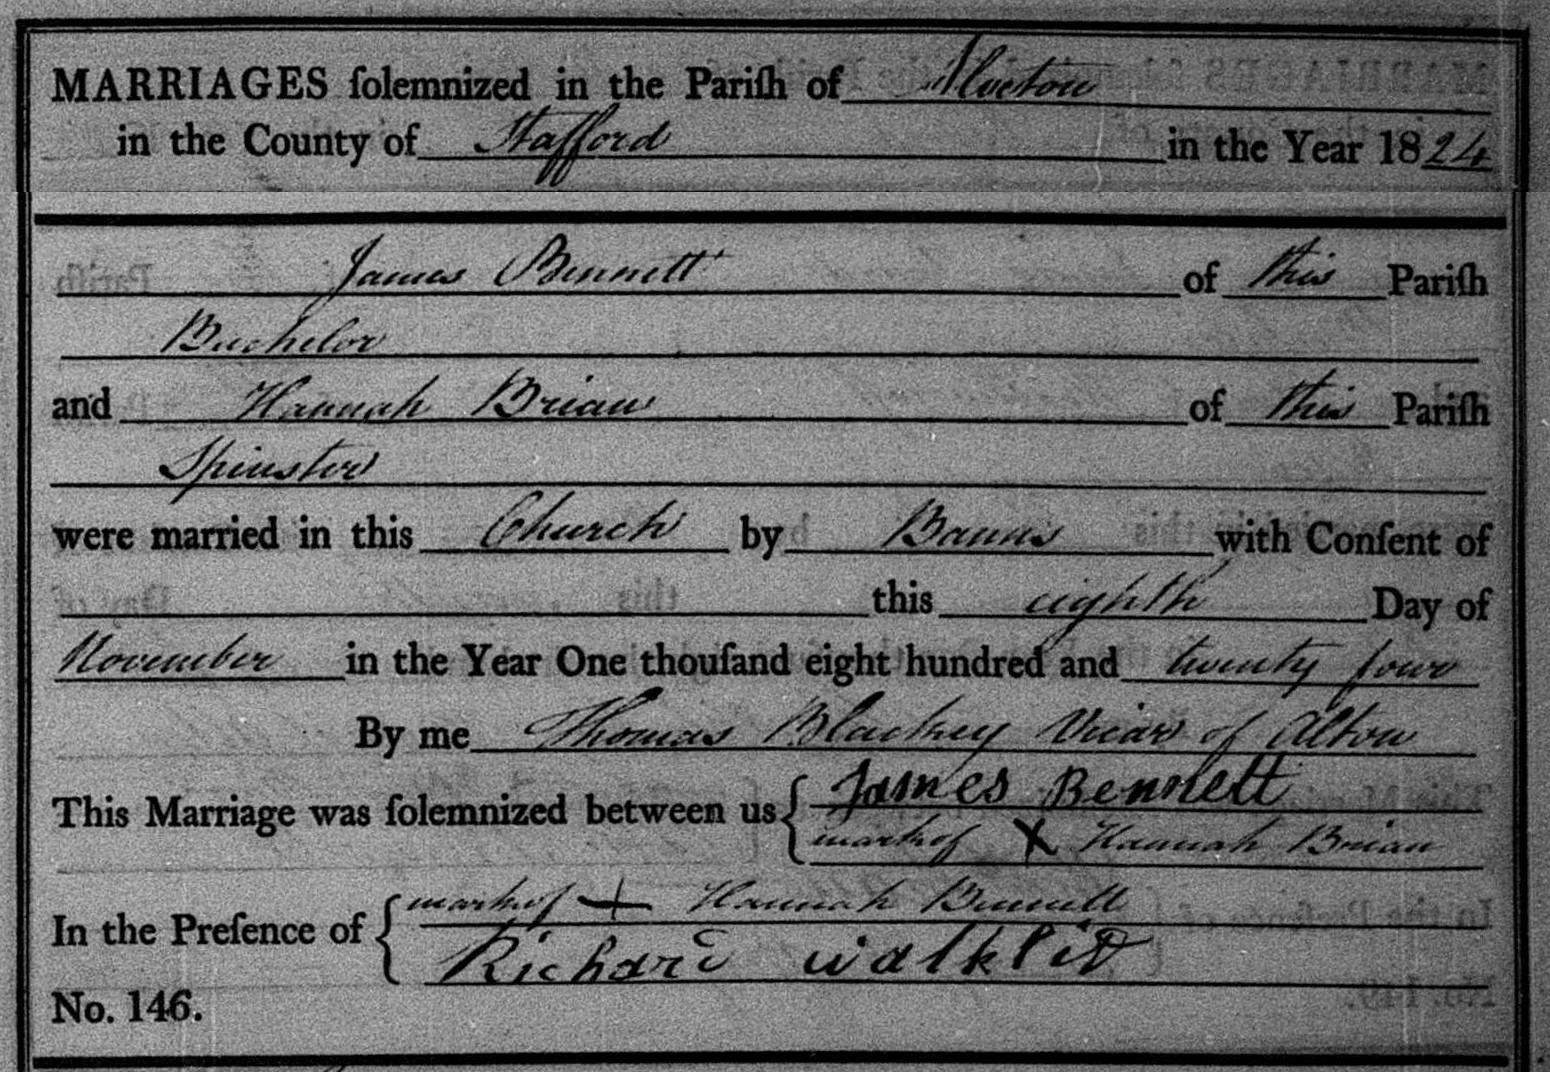 MARRIAGES ſolemnized in the Pariſh of Alveton
in the County of Stafford in the Year 1824
James Bennett of this Pariſh
Bachelor
and Hannah Brian of this Pariſh
Spinster
were married in this Church by Banns with Conſent of
this eighth Day of
November in the Year One thouſand eight hundred and twenty four
By me Thomas Blackey Vicar of Alton
This Marriage was ſolemnized between us James Bennett
mark of X Hannah Brian
In the Preſence of mark of + Hannah Bennett
Richard
No. 146.